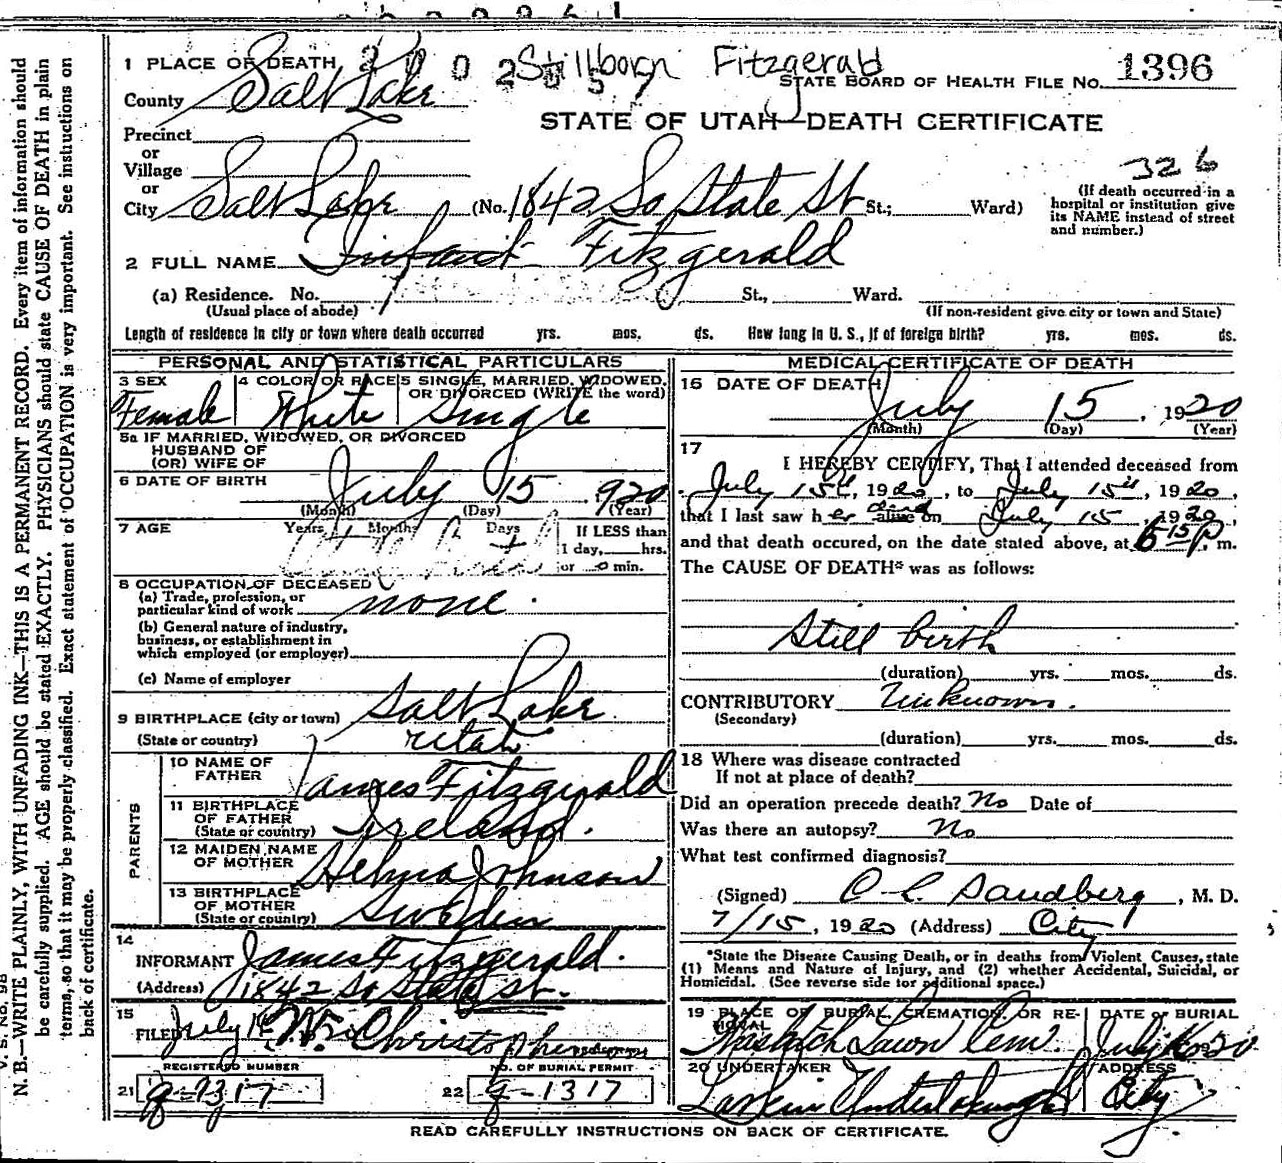 Stillborn Fitzgerald
1 PLACE OF DEATH
STATE BOARD OF HEALTH FILE No. 1396
County Salt Lake
STATE OF UTAH—DEATH CERTIFICATE
Precinct
or
Village
or
City Salt Lake (No. 1842 So State St St.; Ward)
326
(If death occurred in a
hospital or institution give
its NAME instead of street
and number.)
2 FULL NAME Infant Fitzgerald
(a) Residence. No. St., Ward.
(Usual place of abode)
(If non-resident give city or town and State)
Length of residence in city or town where death occurred yrs. mos. ds. How long in U. S., if of foreign birth? yrs. mos. ds.
PERSONAL AND STATISTICAL PARTICULARS
3 SEX
Female
4 COLOR OR RACE
White
5 SINGLE, MARRIED, WIDOWED,
OR DIVORCED (WRITE the word)
Single
5a IF MARRIED, WIDOWED, OR DIVORCED
HUSBAND OF
(OR) WIFE OF
6 DATE OF BIRTH
July 15 920
(Month) (Day) (Year)
7 AGE Years Months Days
If LESS than
1 day, hrs.
or min.
8 OCCUPATION OF DECEASED
(a) Trade, profession, or
particular kind of work none.
(b) General nature of industry,
business, or establishment in
which employed (or employer)
(c) Name of employer
9 BIRTHPLACE (city or town) Salt Lake
(State or country) Utah
PARENTS
10 NAME OF
FATHER James Fitzgerald
11 BIRTHPLACE
OF FATHER
(State or country) Ireland.
12 MAIDEN NAME
OF MOTHER Helma Johnson
13 BIRTHPLACE
OF MOTHER
(State or country) Sweden
14
INFORMANT James Fitzgerald.
(Address) 1842 So State St.
15
FILED July
REGISTERED NUMBER
21 g-1317
NO. OF BURIAL PERMIT
22 g-1317
MEDICAL CERTIFICATE OF DEATH
16 DATE OF DEATH
July 15, 1920
(Month) (Day) (Year)
17
I HEREBY CERTIFY, That I attended deceased from
July 15th, 1920, to July 15th, 1920,
that I last saw her alive on July 15, 1920,
and that death occured, on the date stated above, at 5 15 P. m.
The CAUSE OF DEATH* was as follows:
Still birth
(duration) yrs. mos. ds.
CONTRIBUTORY Unknown.
(Secondary)
(duration) yrs. mos. ds.
18 Where was disease contracted
If not at place of death?
Did an operation precede death? No Date of
Was there an autopsy? No
What test confirmed diagnosis?
(Signed) C-L Sandberg, M. D.
7/15, 1920 (Address) City
*State the Disease Causing Death, or in deaths from Violent Causes, state
(1) Means and Nature of Injury, and (2) whether Accidental, Suicidal, or
Homicidal. (See reverse side for additional space.)
19 PLACE OF BURIAL, CREMATION, OR RE-
MOVAL
Wasatch Lawn Cem.
DATE OF BURIAL
July 16 1920
20 UNDERTAKER
Larkin Undertaking
ADDRESS
City
READ CAREFULLY INSTRUCTIONS ON BACK OF CERTIFICATE.
V. S. No. 98
N. B.—WRITE PLAINLY, WITH UNFADING INK—THIS IS A PERMANENT RECORD. Every item of information should
be carefully supplied. AGE should be stated EXACTLY. PHYSICIANS should state CAUSE OF DEATH in plain
terms, so that it may be properly classified. Exact statement of OCCUPATION is very important. See instructions on
back of certificate.